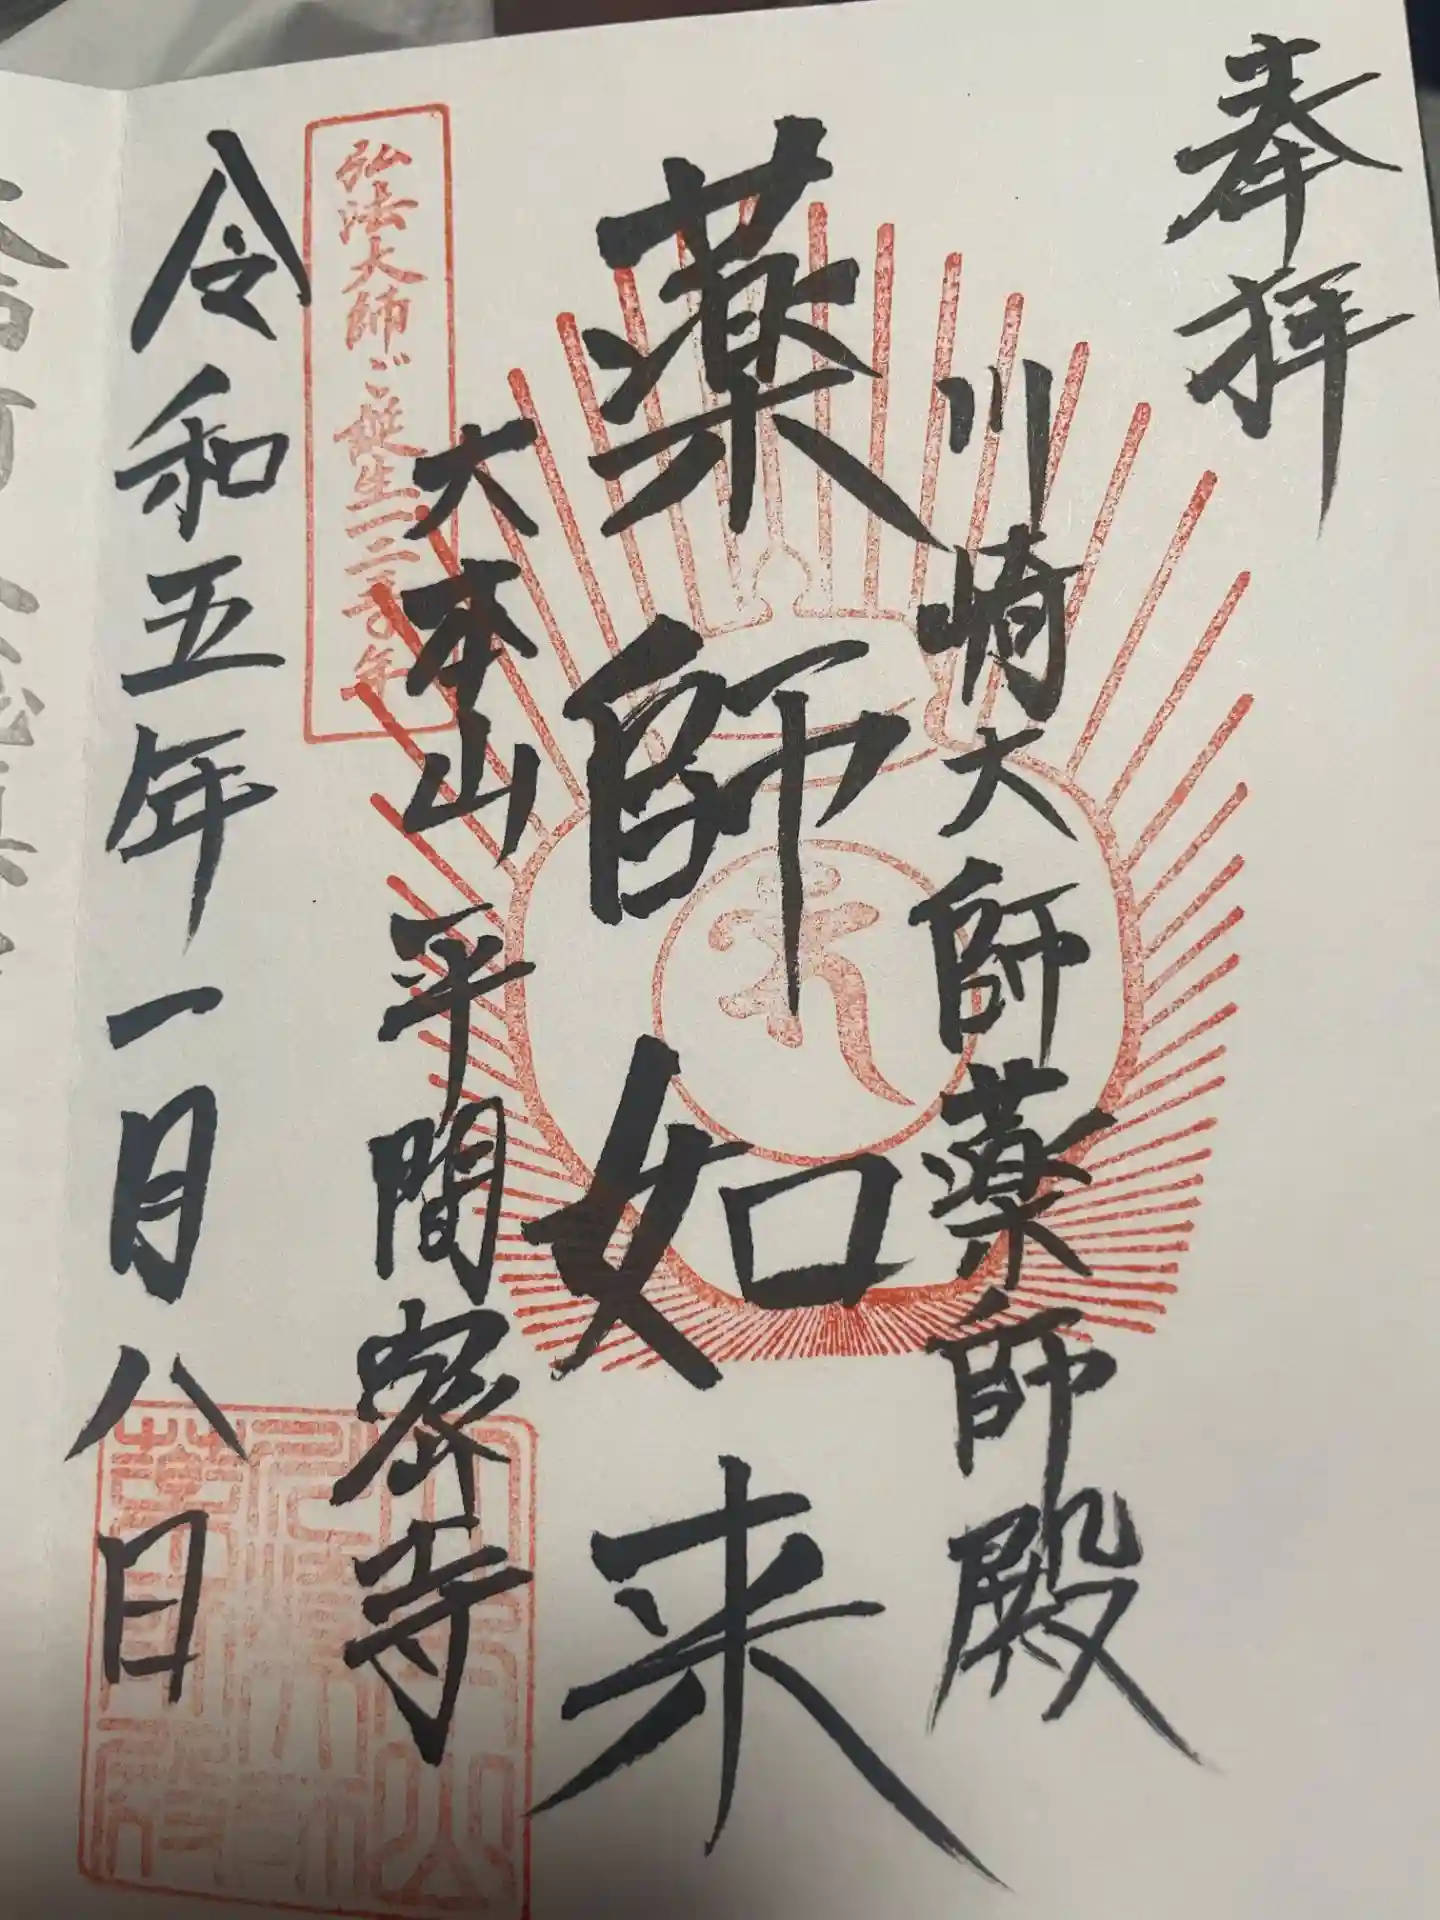 奉拝
川崎大師薬師殿
薬師如来
大本山平間密寺
弘法大師ご誕生一二五〇年
令和五年一月八日